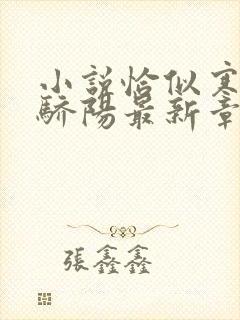 小説恰似寒
驕陽最新章
張鑫鑫